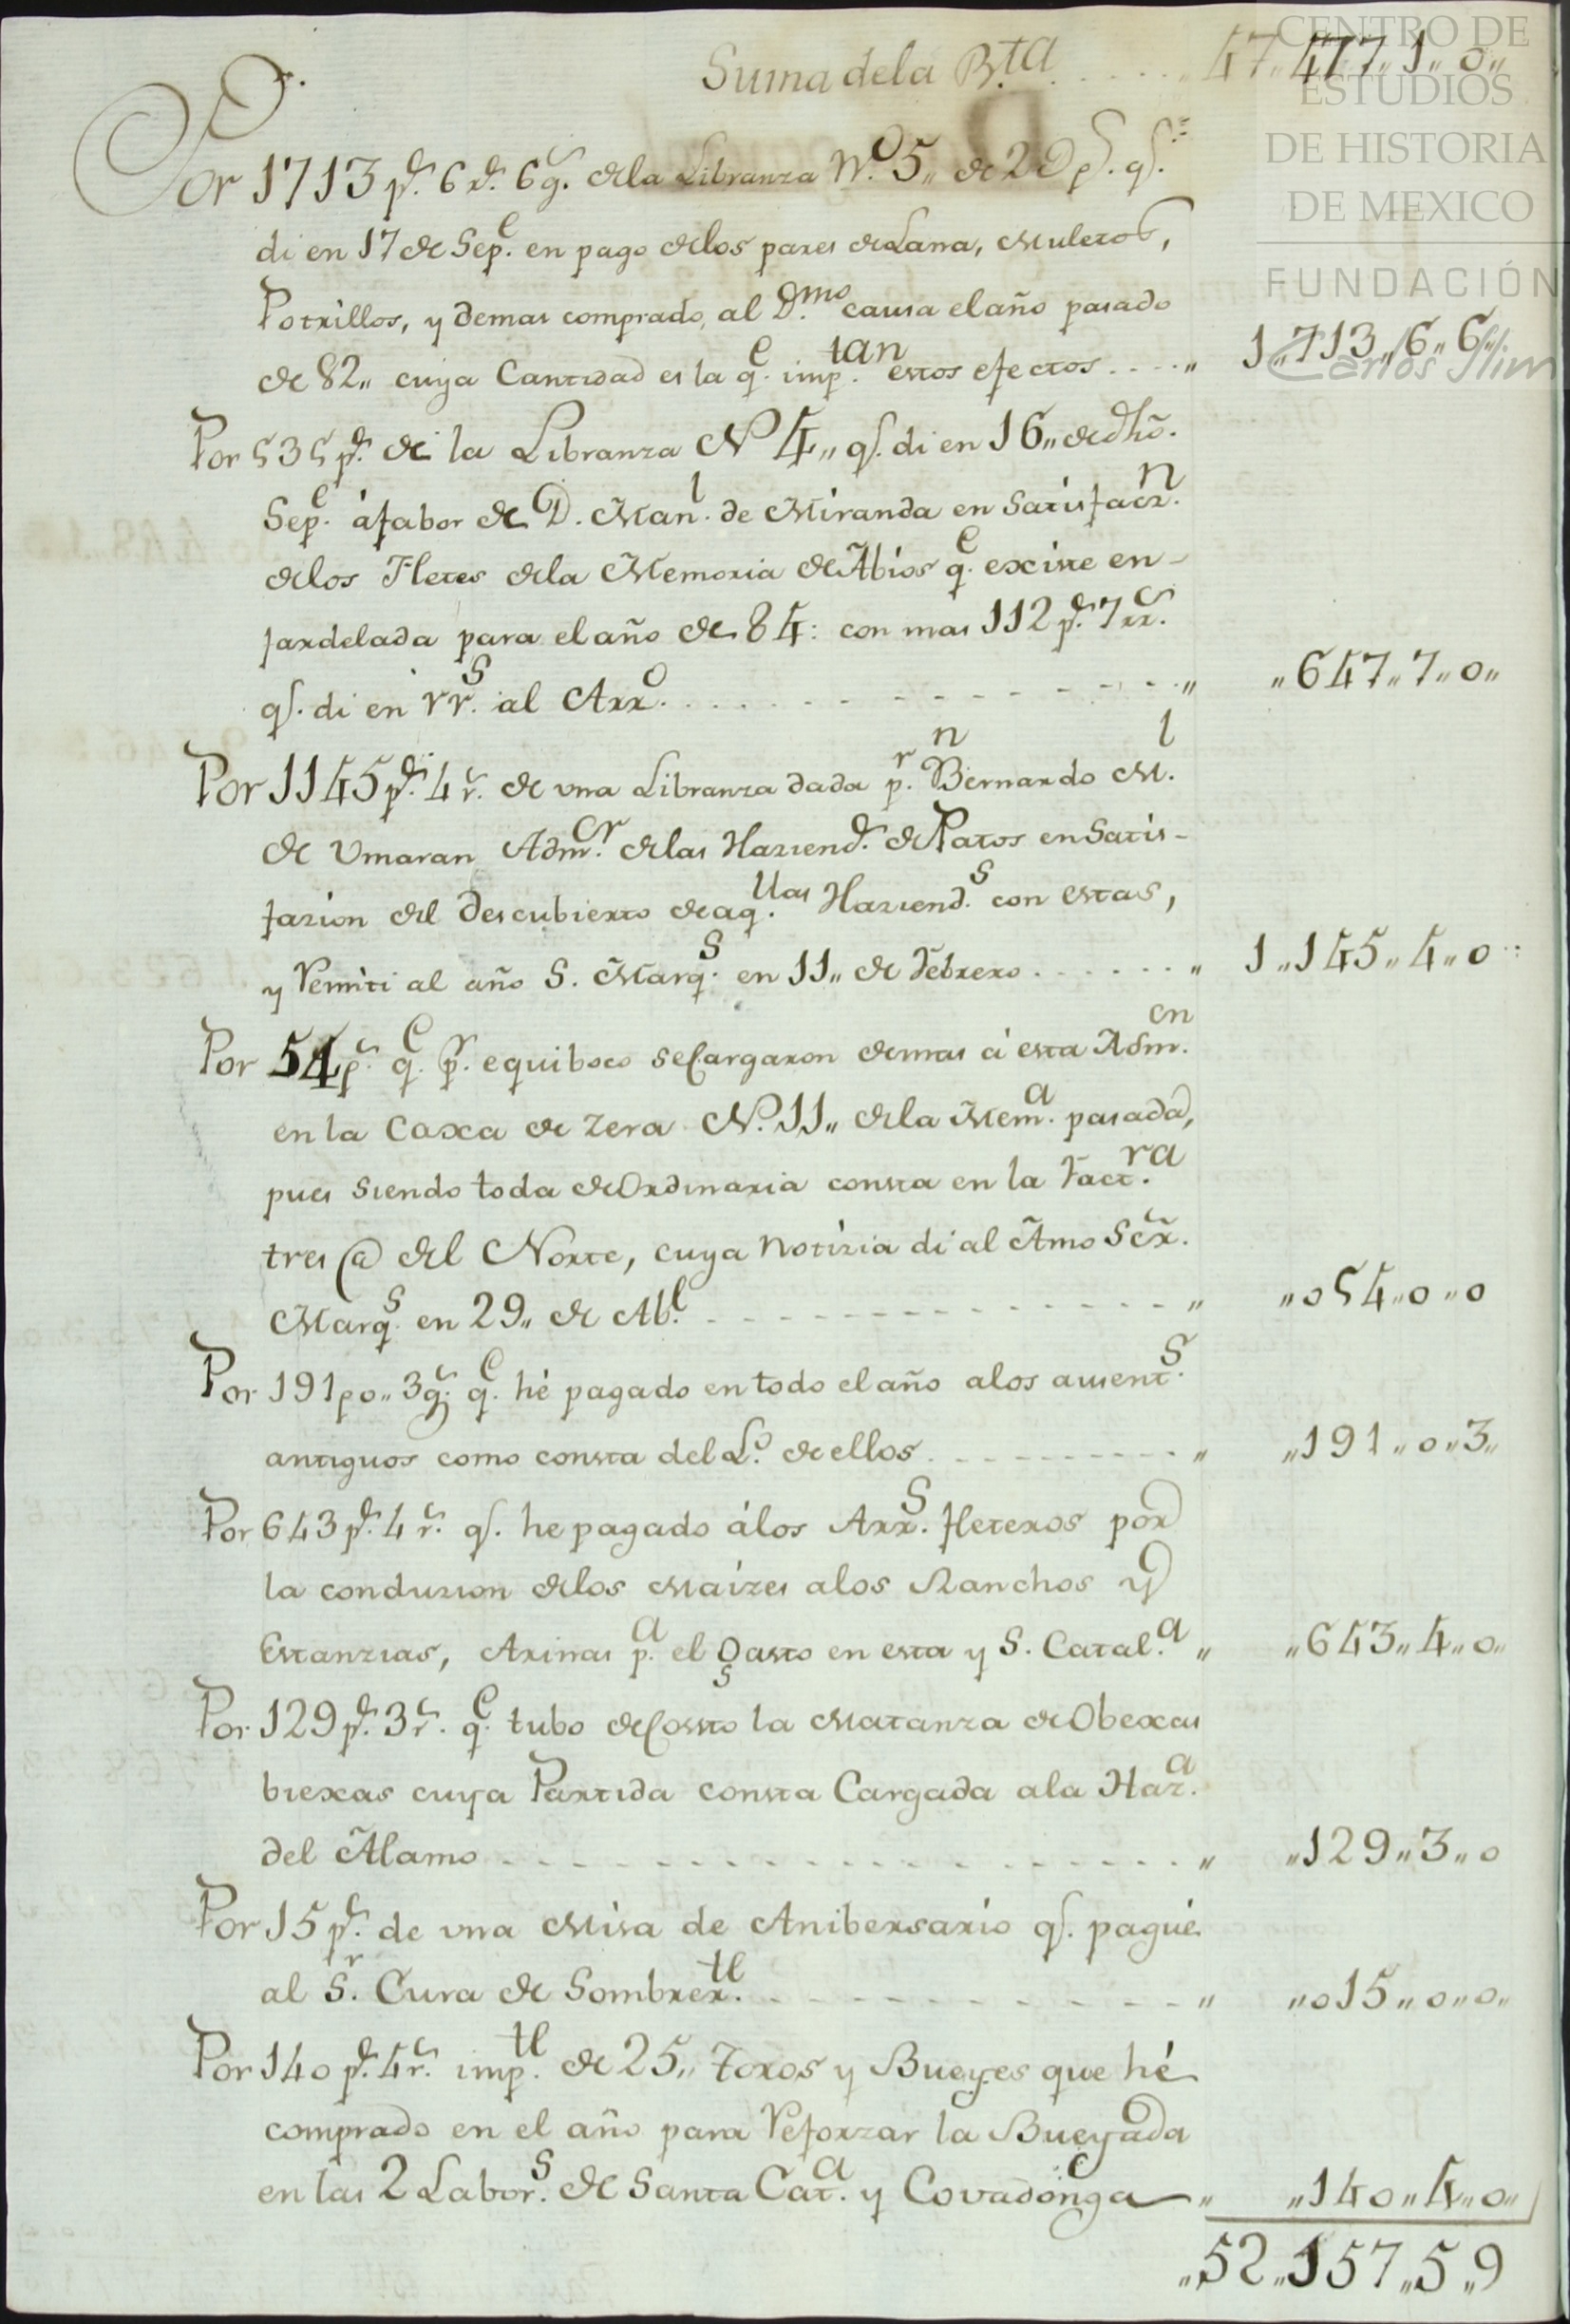 Suma de la B.ta ..... 47,,477,,1,,0,,
CENTRO DE
ESTUDIOS
DE HISTORIA
DE MEXICO
FUNDACIÓN
Carlos Slim
Por 1713 p.s 6 r.s 6 g.s de la Libranza N.o 5,, de 2 D p.s q.e
di en 17 de Sep.e en pago de los pares de Lana, Muletos,
Potrillos, y demas comprado, al D.mo causa el año pasado
de 82,, cuya Cantidad es la q.e imp.tan estos efectos ....,, 1,,713,,6,,6,,
Por 535 p.s de la Libranza N.o 4,, q.e di en 16,, de dhõ.
Sep.e á fabor de D. Man.l de Miranda en Satisfacz.n
de los Fletes de la Memoria de Abios q.e existe en-
fardelada para el año de 84: con mas 112 p.s 7 rr.s
q.e di en rr.s al Arr.o ..........,, ,,647,,7,,0,,
Por 1145 p.s 4 r.s de vna Libranza dada p.r n Bernardo M.l
de Vmaran Adm.or de las Haziend.s de Patos en Satis-
fazion del descubierto de aq.llas Haziend.s con estas,
y Remiti al año S. Marq.s en 11,, de Febrero ......,, 1,,145,,4,,0
Por 54 p.s q.e p.r equiboco se Cargaron demas á esta Adm.on
en la Caxa de Zera N.o 11,, de la Mem.a pasada,
pues siendo toda de Ordinaria consta en la Fact.ra
tres @ del Norte, cuya Notizia di al Amo Sẽr.
Marq.s en 29,, de Ab.l ..........,, ,,054,,0,,0
Por 191 p o,, 3 g.s q.e hé pagado en todo el año a los ausent.s
antiguos como consta del L.o de ellos ..........,, ,,191,,0,,3,,
Por 643 p.s 4 r.s q.e he pagado á los Arr.s fleteros por
la conduzion de los Maizes a los Ranchos y
Estanzias, Arinas p.a el Gasto en esta y S. Catal.a ,, ,,643,,4,,0,,
Por 129 p.s 3 r.s q.e tubo de Costo la Matanza de Obexas
biexas cuya Partida consta Cargada a la Haz.a
del Alamo ..........,, ,,129,,3,,0
Por 15 p.s de vna Misa de Anibersario q.e pagué
al S.r Cura de Sombrer.te ..........,, ,,015,,0,,0,,
Por 140 p.s 4 r.s imp.te de 25,, Toros y Bueyes que hé
comprado en el año para Reforzar la Bueyada
en las 2 Labor.s de Santa Cat.a y Covadonga ,, ,,140,,4,,0,,
,,52,,157,,5,,9